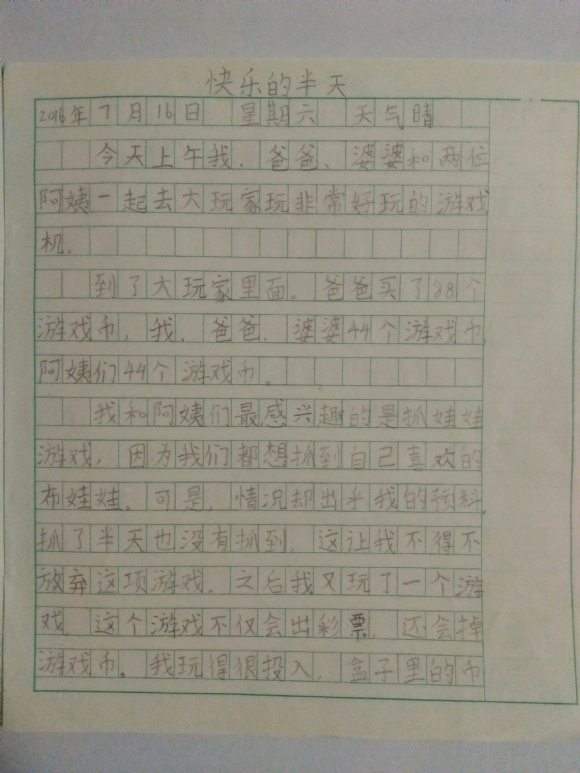 快乐的半天
2016年7月16日 星期六 天气晴
今天上午我、爸爸、婆婆和两位
阿姨一起去大玩家玩非常好玩的游戏
机。
到了大玩家里面。爸爸买了88个
游戏币，我、爸爸、婆婆44个游戏币，
阿姨们44个游戏币。
我和阿姨们最感兴趣的是抓娃娃
游戏，因为我们都想抓到自己喜欢的
布娃娃。可是，情况却出乎我的预料，
抓了半天也没有抓到，这让我不得不
放弃这项游戏。之后我又玩了一个游
戏，这个游戏不仅会出彩票，还会掉
游戏币。我玩得很投入，盒子里的币